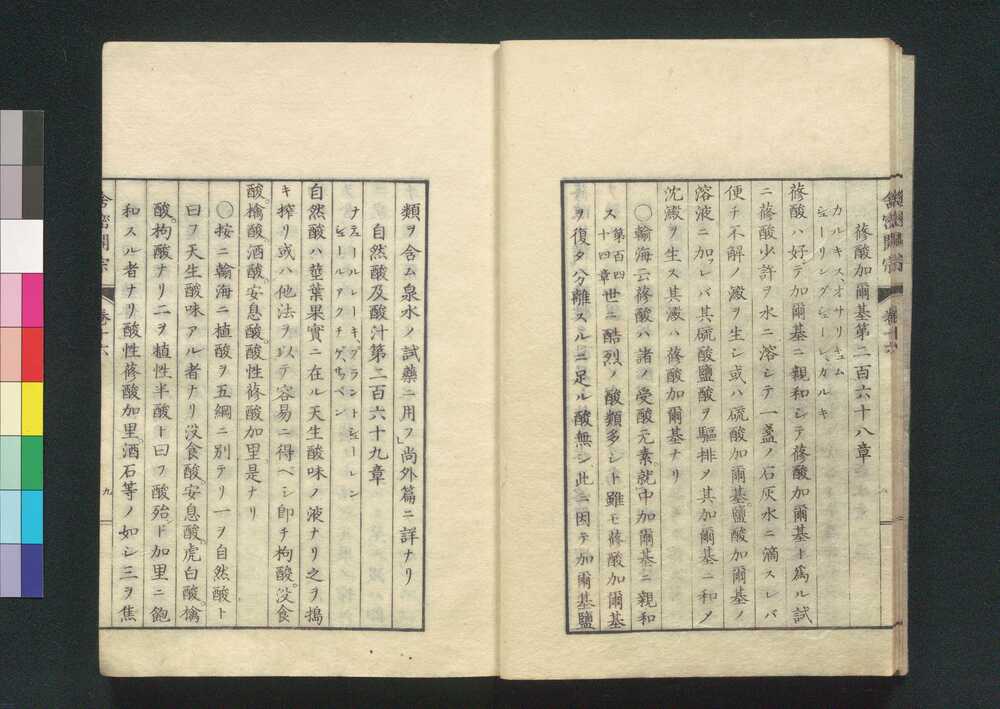 蓚酸加爾基第二百六十八章
カルキスオサリキュム
ジューリングジューレカルキ
蓚酸ハ好テ加爾基ニ親和シテ蓚酸加爾基ト爲ル試
ニ蓚酸少許ヲ水ニ溶シテ一盞ノ石灰水ニ滴スレバ
便チ不解ノ澱ヲ生シ或ハ硫酸加爾基鹽酸加爾基ノ
溶液ニ加フレバ其硫酸鹽酸ヲ驅排ヲ其加爾基ニ和ノ
沈澱ヲ生ス其澱ハ蓚酸加爾基ナリ
〇𬋖海云蓚酸ハ諸ノ受酸元素就中加爾基ニ親和
ス第百四十四章世ニ酷烈ノ酸類多シト雖モ蓚酸加爾基
ヲ復タ分離スルニ足ル酸無シ此ニ因テ加爾基鹽
類ヲ含ム泉水ノ試藥ニ用フ」尚外篇ニ詳ナリ
自然酸及酸汁第二百六十九章
自然酸ハ莖葉果實ニ在ル天生酸味ノ液ナリ之ヲ搗
キ搾リ或ハ他法ヲ以テ容易ニ得ベシ即チ枸酸。没食
酸。檎酸酒酸。安息酸。酸性蓚酸加里是ナリ
〇按ニ𬋖海ニ植酸ヲ五綱ニ別テリ一ヲ自然酸ト
曰フ天生酸味アル者ナリ没食酸。安息酸。虎白酸。檎
酸。枸酸ナリ二ヲ植性半酸ト曰フ酸殆ド加里ニ飽
和スル者ナリ酸性蓚酸加里。酒石等ノ如シ三ヲ焦
舎密開宗
巻十六
九